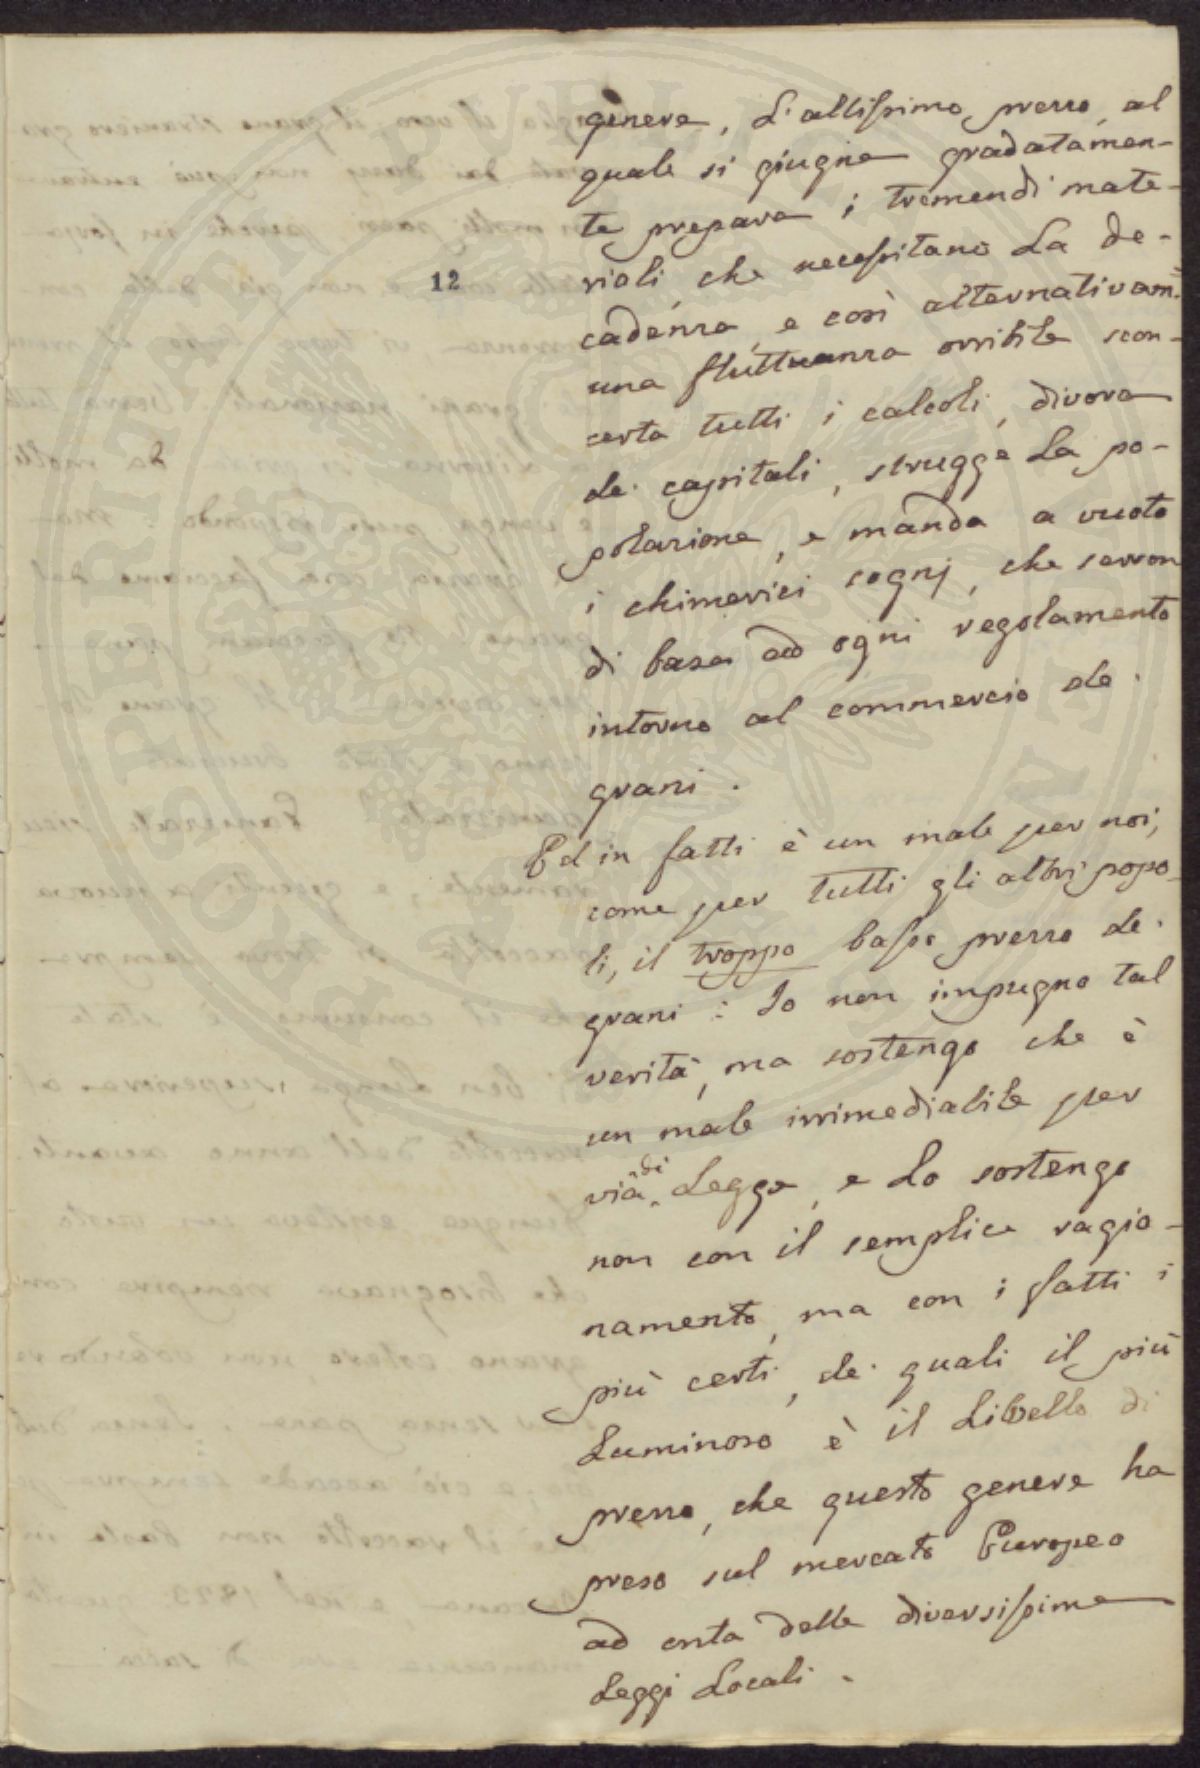 genere, L'altissimo prezzo, al
quale si giugne gradatamen-
te prepara i tremendi mate-
riali, che necessitano La de-
cadenza, e così alternativam.
una fluttuanza orribile scon-
certa tutti i calcoli, divora
de' capitali, strugge La po-
polazione, e manda a vuoto
i chimerici sogni, che servon
di base ad ogni regolamento
intorno al commercio de'
grani.
Ed in fatti è un male per noi,
come per tutti gli altri popo-
li, il troppo basso prezzo de'
grani: Io non impugno tal
verità, ma sostengo che è
un male irrimediabile per
via di Legge, e Lo sostengo
non con il semplice ragio-
namento, ma con i fatti i
più certi, de' quali il più
Luminoso è il Livello di
prezzo, che questo genere ha
preso sul mercato Europeo
ad onta delle diversissime
Leggi Locali.
12
PROSPERITÀ PUBLICAE